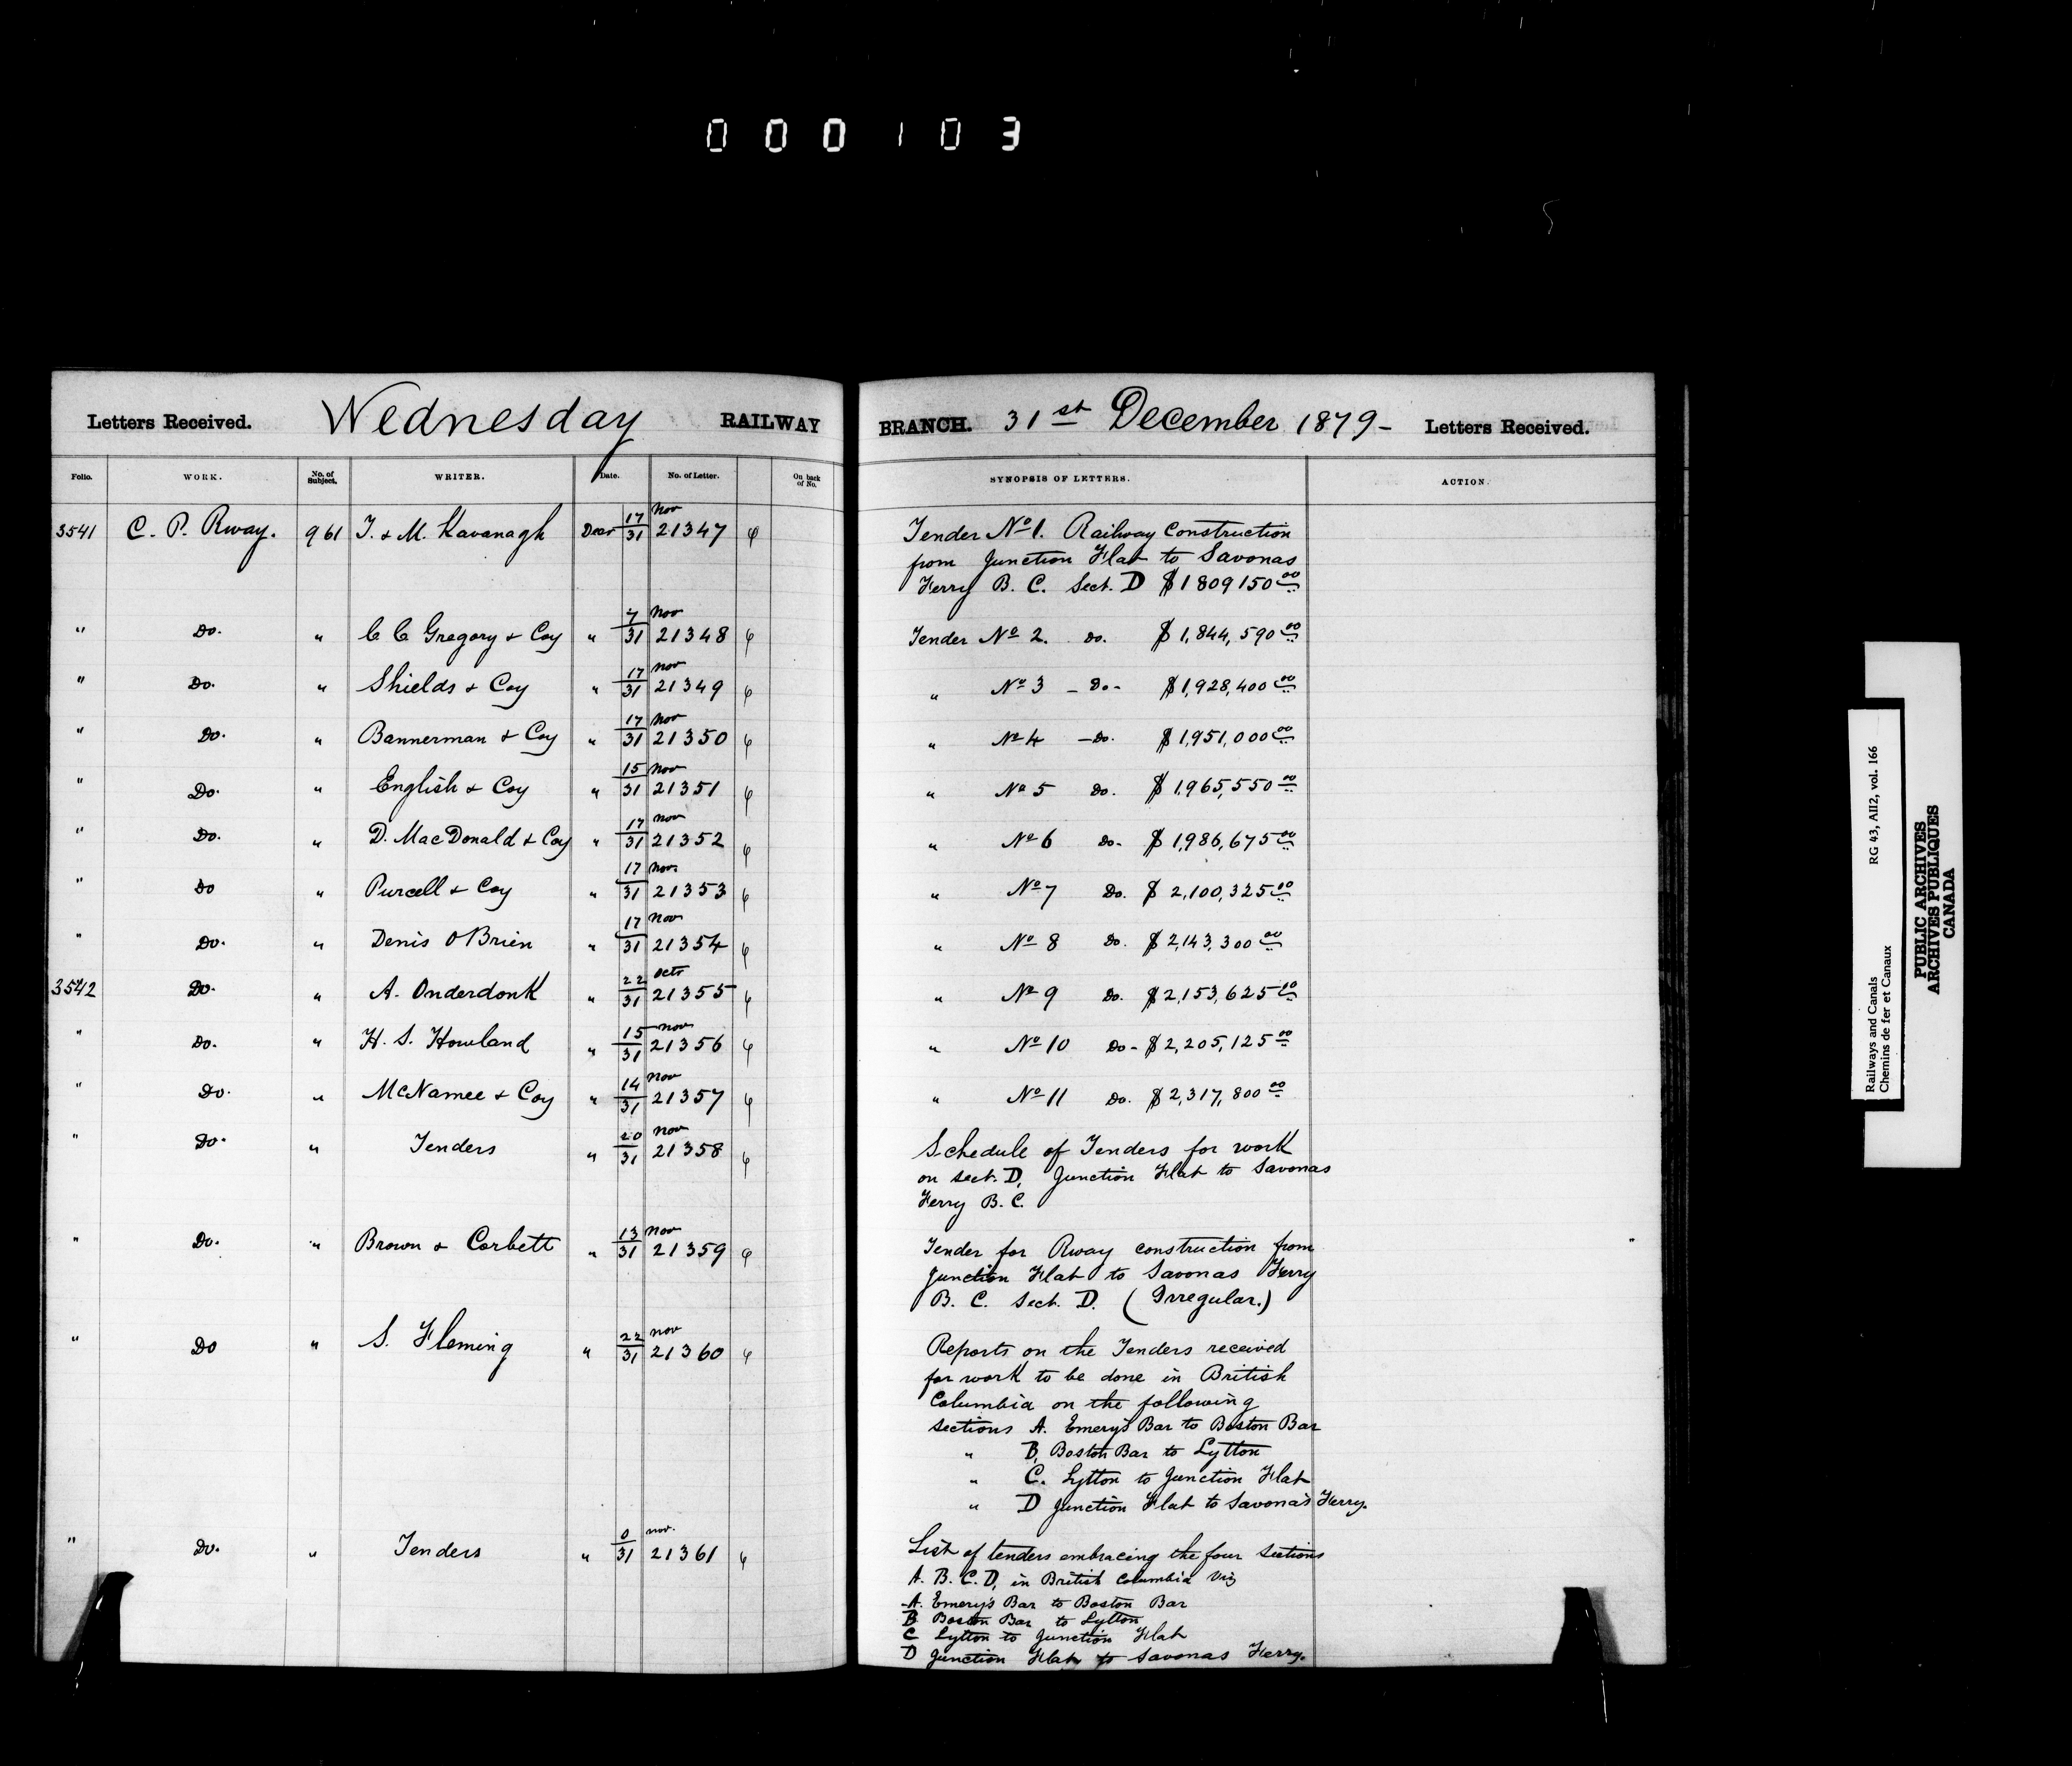 000103
Letters Received. Wednesday RAILWAY BRANCH. 31st December 1879- Letters Received.
Folio. WORK. No. of Subject. WRITER. Date. No. of Letter. On back of No. SYNOPSIS OF LETTERS. ACTION.
3541 C. P. Rway. 961 T. & M. Kavanagh Decr 17/31 Nov 21347 Tender No 1. Railway Construction
from Junction Flat to Savonas
Ferry B. C. Sect. D $1809150 00
" Do. " C C Gregory & Coy " 7/31 Nov 21348 Tender No 2. do. $1,844,590 00
" Do. " Shields & Coy " 17/31 Nov 21349 " No 3 - Do - $1,928,400 00
" Do. " Bannerman & Coy " 17/31 Nov 21350 " No 4 - Do. $1,951,000 00
" Do. " English & Coy " 15/31 Nov 21351 " No 5 Do. $1,965,550 00
" Do. " D. MacDonald & Coy " 17/31 Nov 21352 " No 6 Do- $1,986,675 00
" Do " Purcell & Coy " 17/31 Nov. 21353 " No 7 Do. $2,100,325 00
" Do. " Denis O'Brien " 17/31 Nov 21354 " No 8 Do. $2,143,300 00
3542 Do. " A. Onderdonk " 22/31 Octr 21355 " No 9 Do. $2,153,625 00
" Do. " H. S. Howland " 15/31 Nov 21356 " No 10 Do - $2,205,125 00
" Do. " McNamee & Coy " 14/31 Nov 21357 " No 11 Do. $2,317,800 00
" Do. " Tenders " 20/31 Nov 21358 Schedule of Tenders for work
on sect. D, Junction Flat to Savonas
Ferry B. C.
" Do. " Brown & Corbett " 13/31 Nov 21359 Tender for Rway construction from
Junction Flat to Savonas Ferry
B. C. Sect. D. (Irregular.)
" Do " S. Fleming " 22/31 Nov 21360 Reports on the Tenders received
for work to be done in British
Columbia on the following
sections A. Emery's Bar to Boston Bar
" B, Boston Bar to Lytton
" C. Lytton to Junction Flat
" D Junction Flat to Savona's Ferry.
" Do. " Tenders " 0/31 Nov. 21361 List of tenders embracing the four sections
A. B. C. D, in British Columbia Viz
A. Emery's Bar to Boston Bar
B Boston Bar to Lytton
C Lytton to Junction Flat
D Junction Flat to Savonas Ferry.
Railways and Canals RG 43, AII2, vol. 166
Chemins de fer et Canaux
PUBLIC ARCHIVES
ARCHIVES PUBLIQUES
CANADA